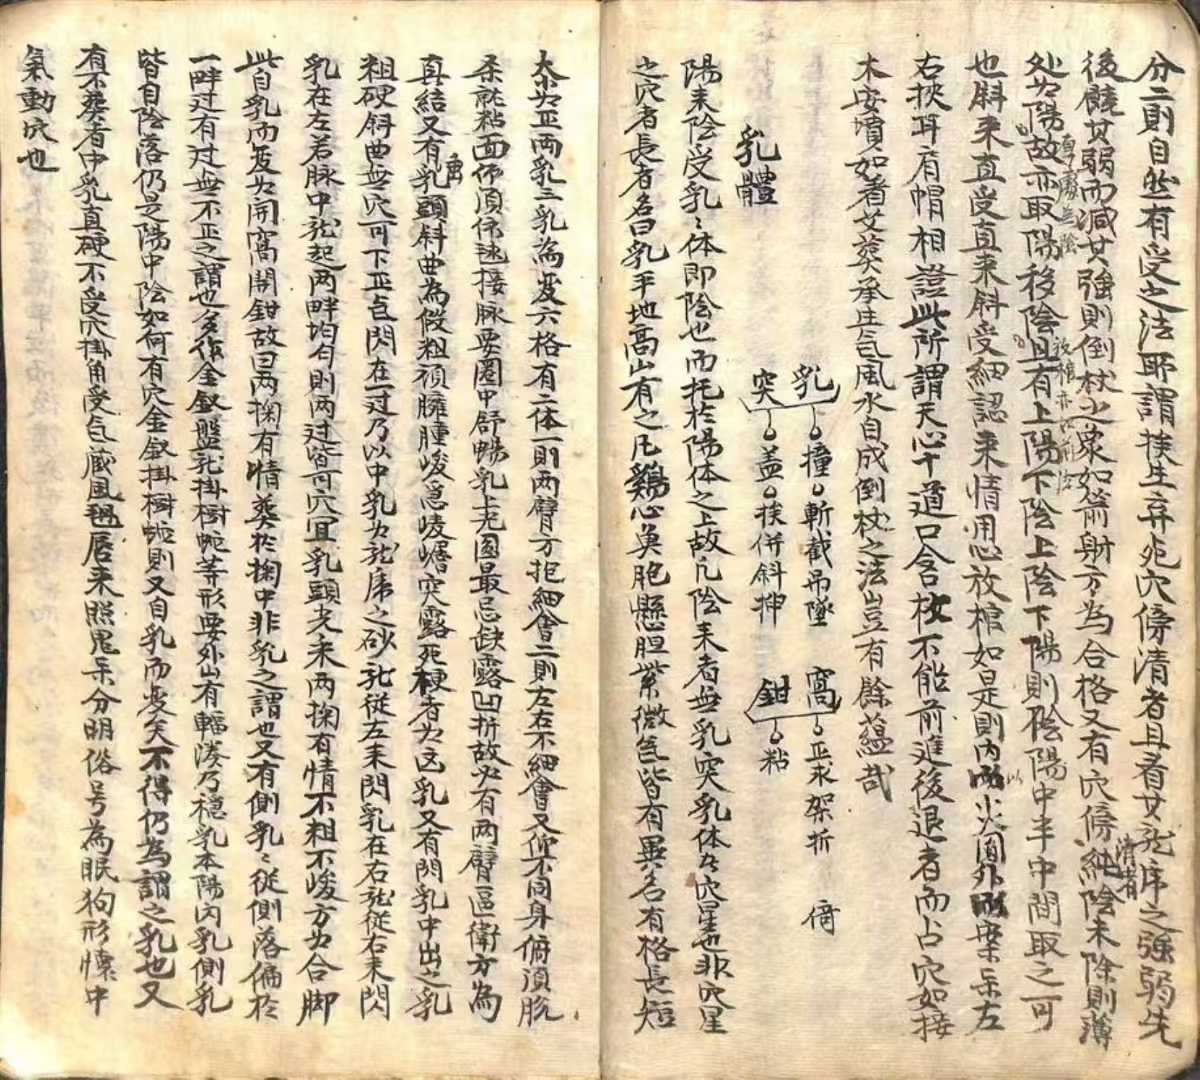 分二則自然有受之法耶謂挨生弃死穴傍清者且看其龙虎之強弱先
後饒其弱而減其強則倒杖之象如箭射方為合格又有穴傍純陰未除則薄
清者
处为陽故亦取陽移陰且有上陽下陰上陰下陽則陰陽中半中間取之可
也斜来直受直来斜受細認来情用心放棺如是則內以火間外案乐左
右挾耳肩帽相證此所謂天心十道口含枚不能前進後退者而占穴如接
木安墳如着衣葬承生气風水自成倒杖之法豈有餘蘊哉
乳 撞 斬截吊墜 窩 正求架折 倚
突 盖 挨併斜抻 鉗 粘
乳體
陽来陰受乳々体即陰也而托於陽体之上故凡陰来者無乳突乳体名穴星也非穴星
之穴者長者名曰乳平地高山有之凡鷄心魚胞懸胆紫微色皆有異名有格長短
大小为正两乳三乳為变六格有二体一則两臂方拒細會二則左右不細會又你不同身俯頂脫
柔就粘面仰頂俯詠接脉要圈中舒暢乳上光圆最忌缺露凹折故必有两臂區衛方為
真結又有乳頭斜曲為假粗頑臃腫峻急崚嶒突露死梗者为凶乳又有閃乳中出之乳
粗硬斜曲無穴可下正乞閃在一过乃以中乳为龙虎之砂龙從左来閃乳在右龙從右来閃
乳在左若脉中龙起两畔均勻則两过皆可穴宜乳頭光来两掬有情不粗不峻方为合脚
此自乳而变为開窩開鉗故曰两掬有情葬於掬中非乳之謂也又有側乳々從側落偏於
一畔过有过無不正之謂也多作金釵盤龙掛樹蛇等形要外山有輻湊乃穩乳本陽內乳側乳
皆自陰落仍是陽中陰如何有穴金釵掛樹蛇則又自乳而变矣不得仍為謂之乳也又
有不葬者中乳直硬不受穴掛角受气藏風毬唇来照鬼乐分明俗号為眠狗形懷中
氣動穴也